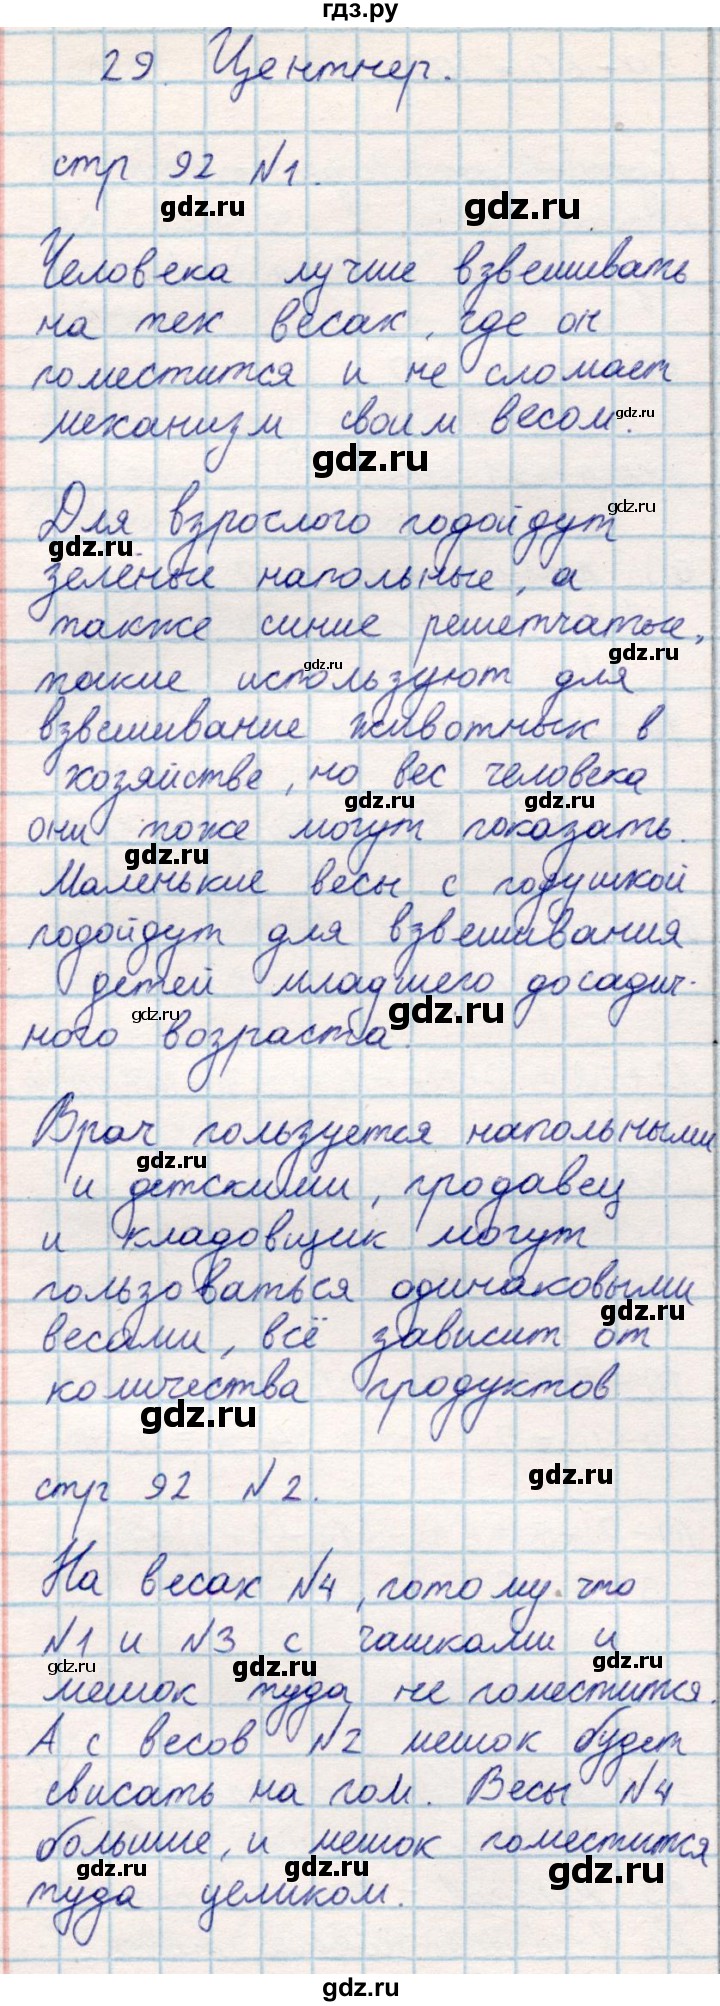 гдз.ру
29. Центнер.
стр 92 №1.
gdz.ru gdz.ru
Человека лучше взвешивать
на тех весах, где он
поместится и не сломает
механизм своим весом. gdz.ru
gdz.ru
Для взрослого подойдут gdz.ru
gdz.ru
зелёные напольные, а
также синие решетчатые,
gdz.ru gdz.ru
такие используют для
взвешивание животных в
хозяйстве, но вес человека
gdz.ru gdz.ru
они тоже могут показать.
gdz.ru
Маленькие весы с подушкой
подойдут для взвешивания
детей младшего досадич-
gdz.ru gdz.ru
ного возраста.
Врач пользуется напольными
gdz.ru
и детскими, продавец
и кладовщик могут
пользоваться одинаковыми
gdz.ru
весами, всё зависит от
количества продуктов
gdz.ru
стр 92 №2. gdz.ru
На весах №4, потому что
№1 и №3 с чашками и
gdz.ru gdz.ru gdz.ru
мешок туда не поместится.
А с весов №2 мешок будет
свисать на пол. Весы №4
большие, и мешок поместится
gdz.ru gdz.ru gdz.ru
туда целиком.
gdz.ru